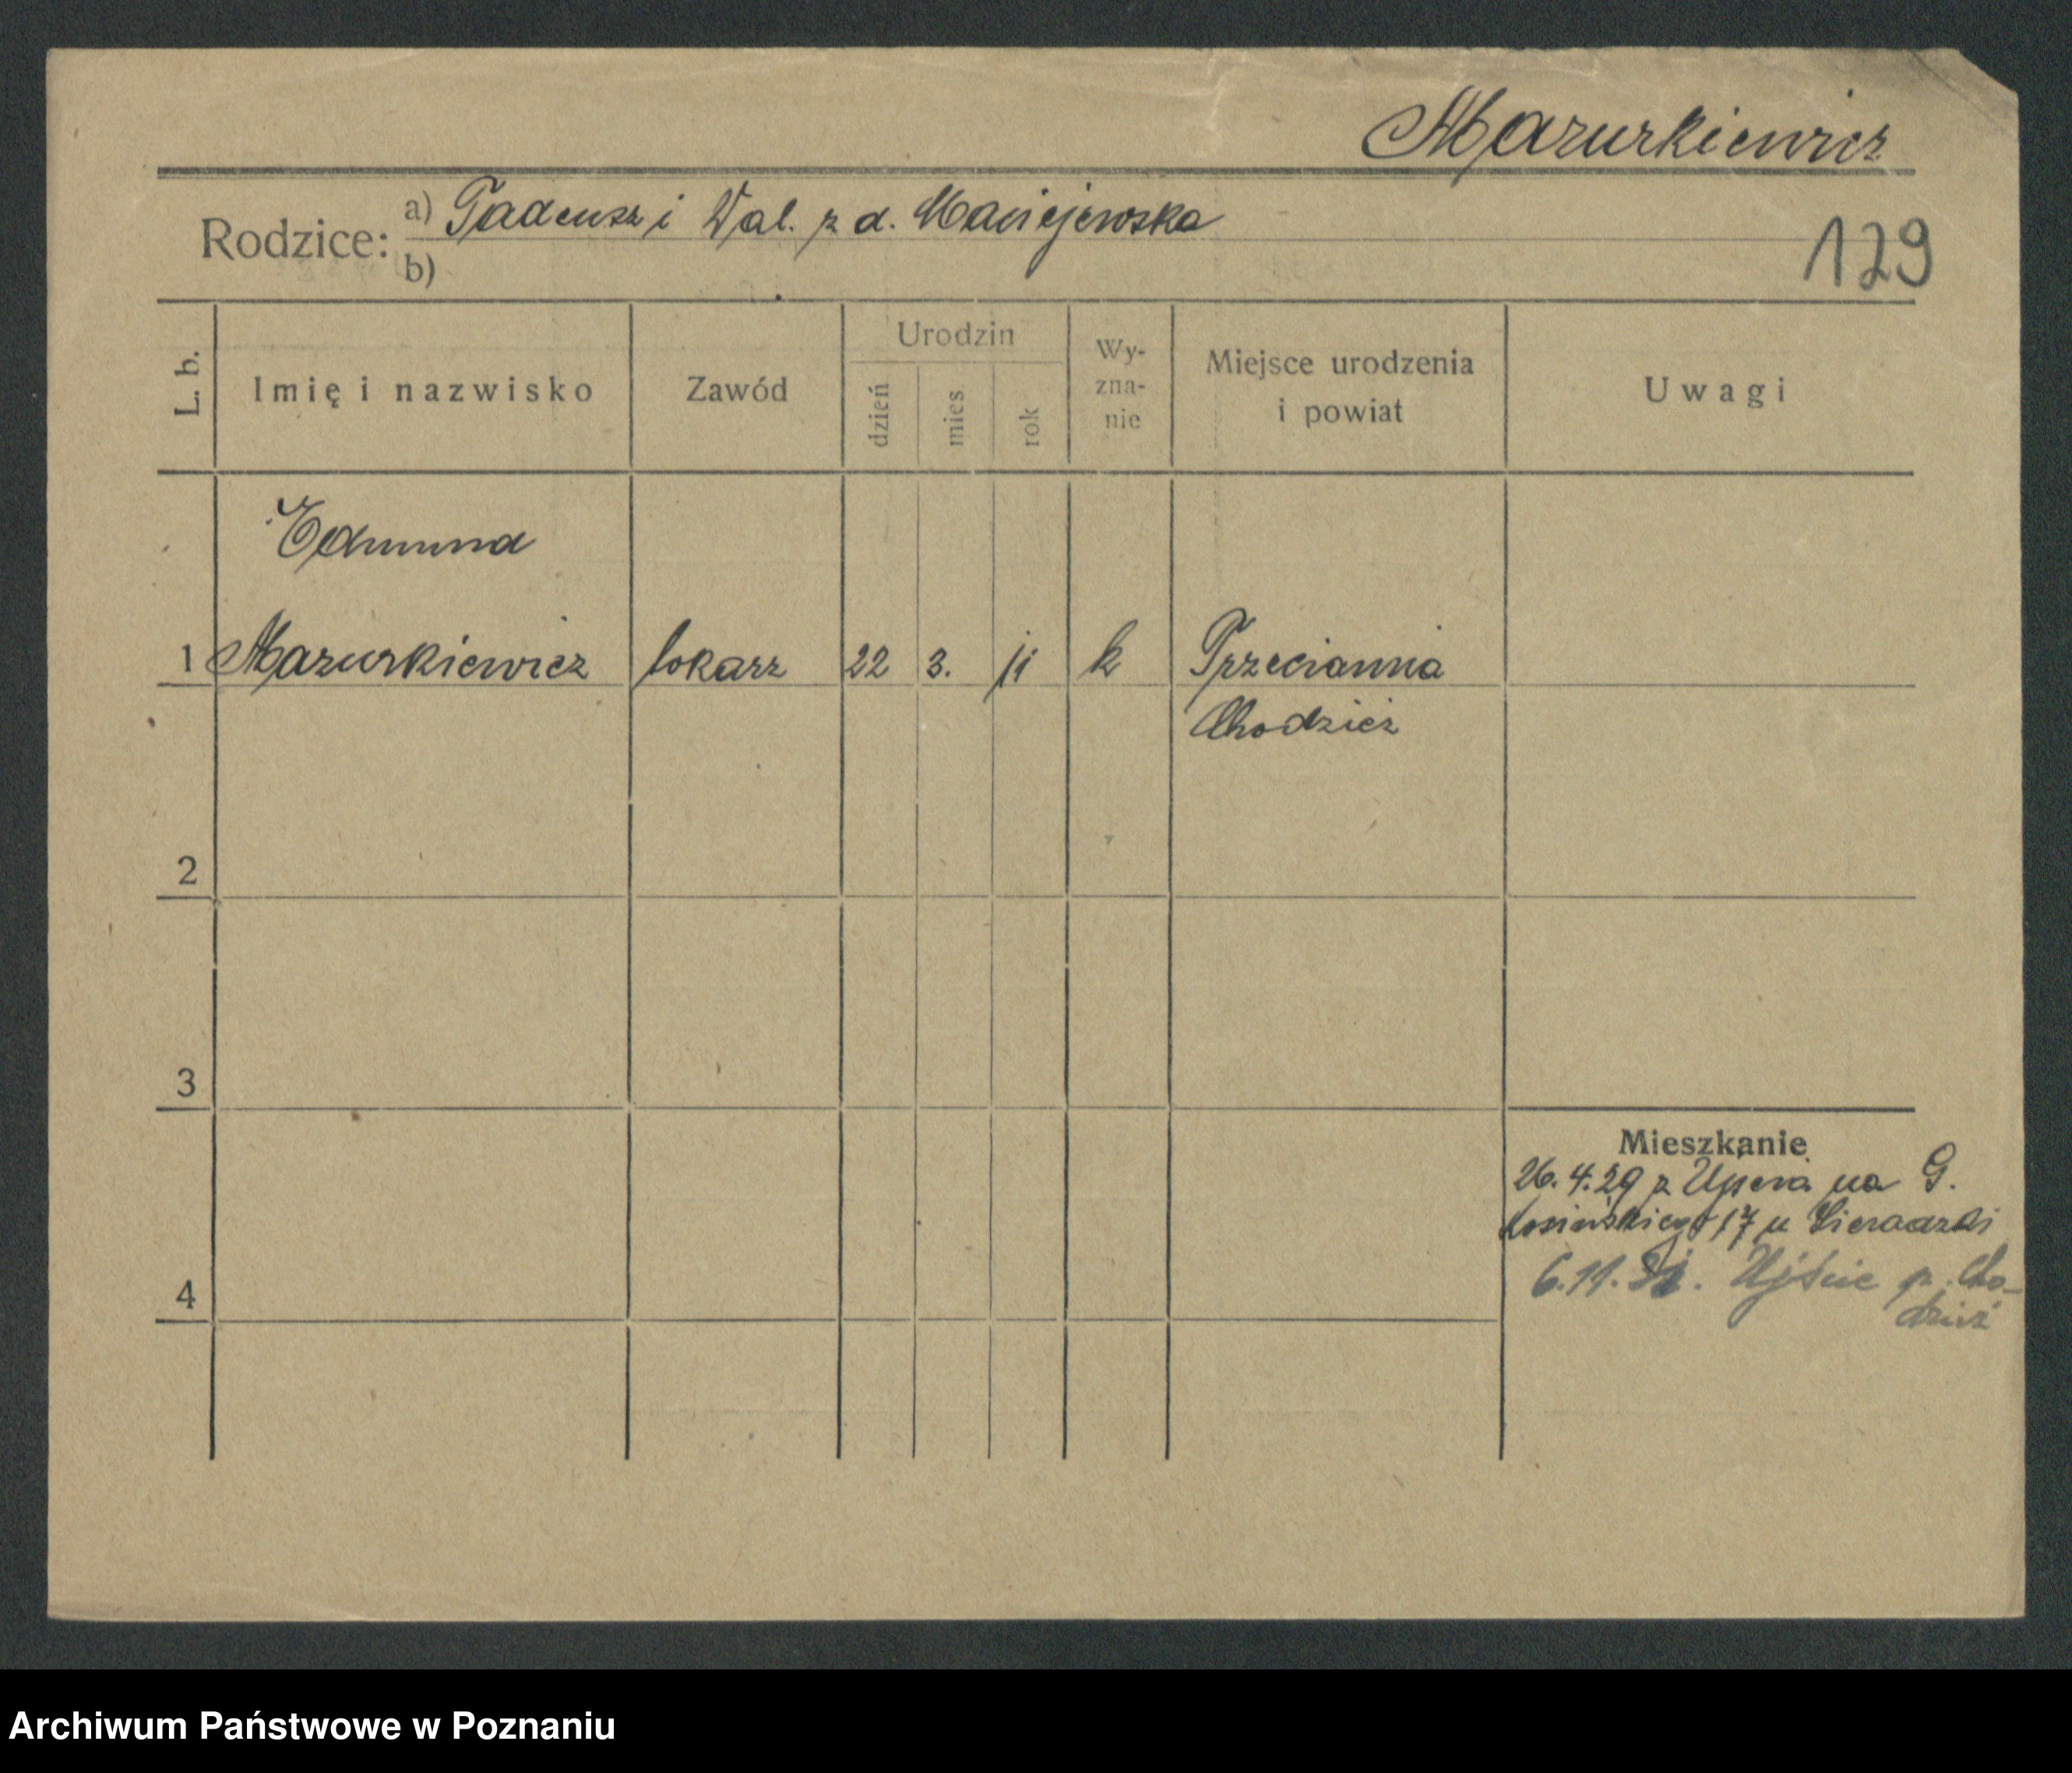 Mazurkiewicz
Rodzice: a) Tadeusz i Wal. z d. Maciejewska
b)
129
L. b.
Imię i nazwisko
Zawód
Urodzin
dzień
mies.
rok
Wy-
zna-
nie
Miejsce urodzenia
i powiat
Uwagi
Edmund
1 Mazurkiewicz tokarz 22 3. 11 k Trzecianna
Chodzież
2
3
4
Mieszkanie
26.4.29 z na G.
17 u
6.11. Ujście p. Cho-
dzież
Archiwum Państwowe w Poznaniu